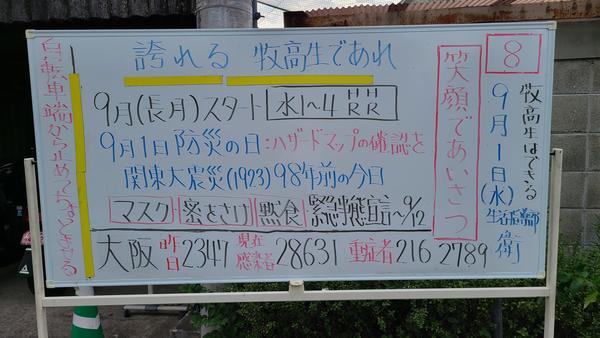 誇れる 牧高生であれ
9月(長月)スタート 水1〜4 HR HR
9月1日防災の日:ハザードマップの確認を
関東大震災(1923)98年前の今日
マスク 密をさけ 黙食 緊急事態宣言〜9/12
大阪 昨日2347 現在感染者28631 重症者216 2789
笑顔であいさつ
8
牧高生はできる
9月1日(水)
自転車端から止めて